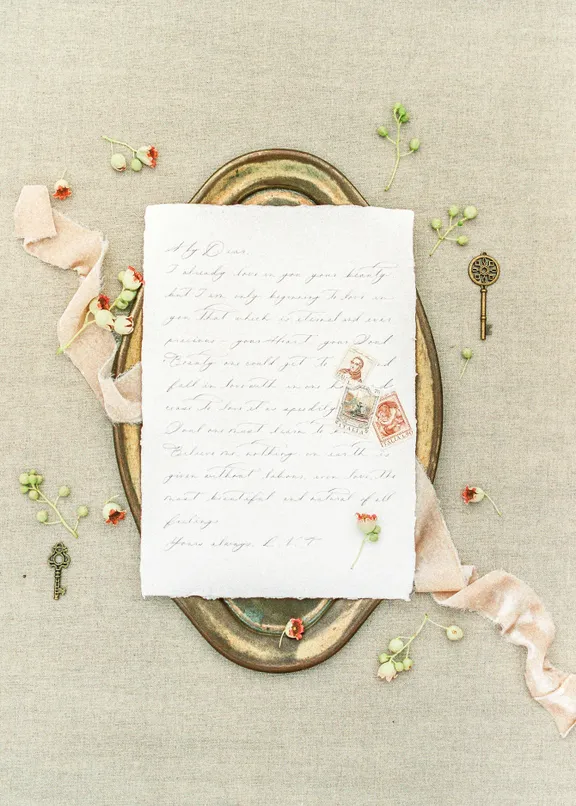 My Dear,
I already love in you your beauty,
but I am only beginning to love in
you that which is eternal and ever
precious - your heart, your Soul.
Beauty one could get to
fall in love with in one h
cease to love it as speedily
Soul one must learn to
Believe me, nothing on earth is
given without labour, even love, the
most beautiful and natural of all
feelings.
Yours always, L. N. T.
ITALIA
ITALIANE